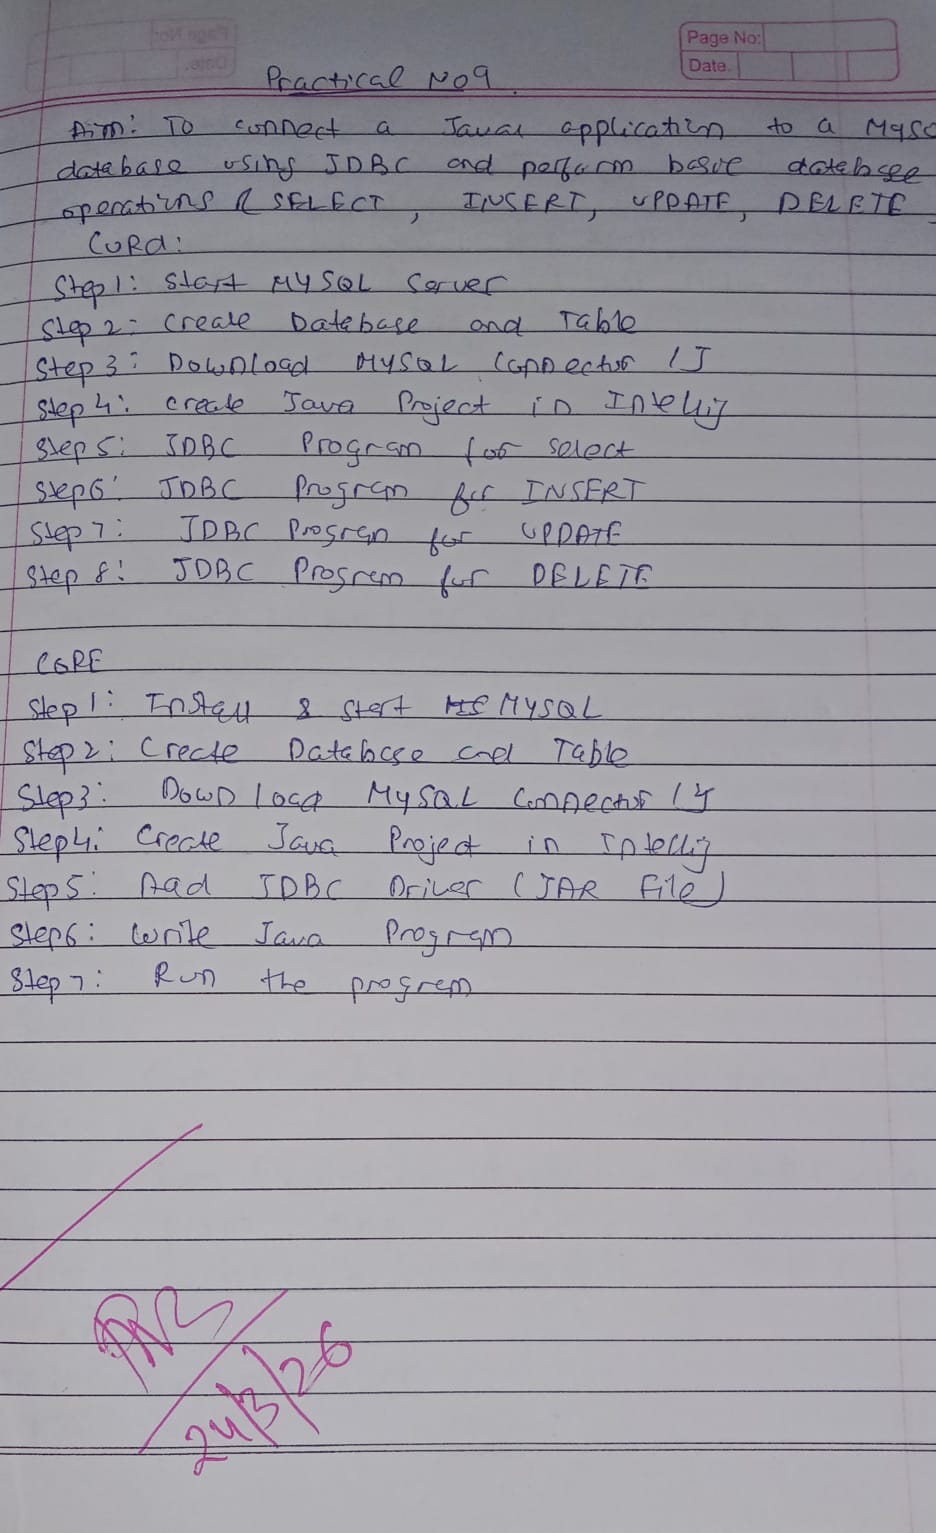 Page No:
Date.
Practical No 9
Aim: To connect a Javar application to a MySQ
database using JDBC and perform basic databsee
operations ( SELECT, INSERT, UPDATE, DELETE
Step 1: Start MySQL Server
Step 2: Create Database and Table
Step 3: Download MySQL Connector / J
Step 4: create Java Project in Intellij
Step 5: JDBC Program for select
Step 6: JDBC Program for INSERT
Step 7: JDBC Program for UPDATE
Step 8: JDBC Program for DELETE
CORE
Step 1: Install & start MySQL
Step 2: Create Database and Table
Step 3: Download MySQL Connector / J
Step 4: Create Java Project in Intellij
Step 5: Aad JDBC Driver (JAR File)
Step 6: Write Java Program
Step 7: Run the program
24/3/26